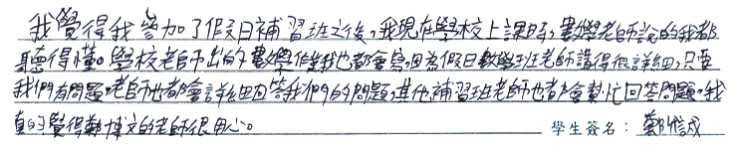 我覺得我參加了假日補習班之後，我現在學校上課時，數學老師說的我都
聽得懂。學校老師出的數學作業我也都會寫，因為假日數學班老師講得很詳細，只要
我們有問題，老師也都會詳細回答我們的問題，其他補習班老師也都會幫忙回答問題。我
真的覺得鄭博文的老師很用心。 學生簽名：鄭 誠